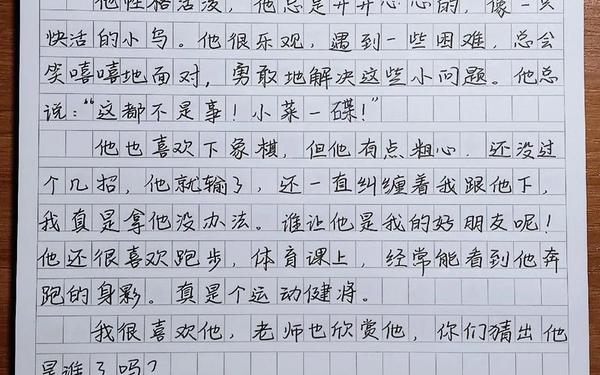 他性格活泼，他总是开开心心的，像一只
快活的小鸟。他很乐观，遇到一些困难，总会
笑嘻嘻地面对，勇敢地解决这些小问题。他总
说：“这都不是事！小菜一碟！”
他也喜欢下象棋，但他有点粗心．还没过
个几招，他就输了，还一直纠缠着我跟他下，
我真是拿他没办法。谁让他是我的好朋友呢！
他还很喜欢跑步，体育课上，经常能看到他奔
跑的身影。真是个运动健将。
我很喜欢他，老师也欣赏他，你们猜出他
是谁了吗？